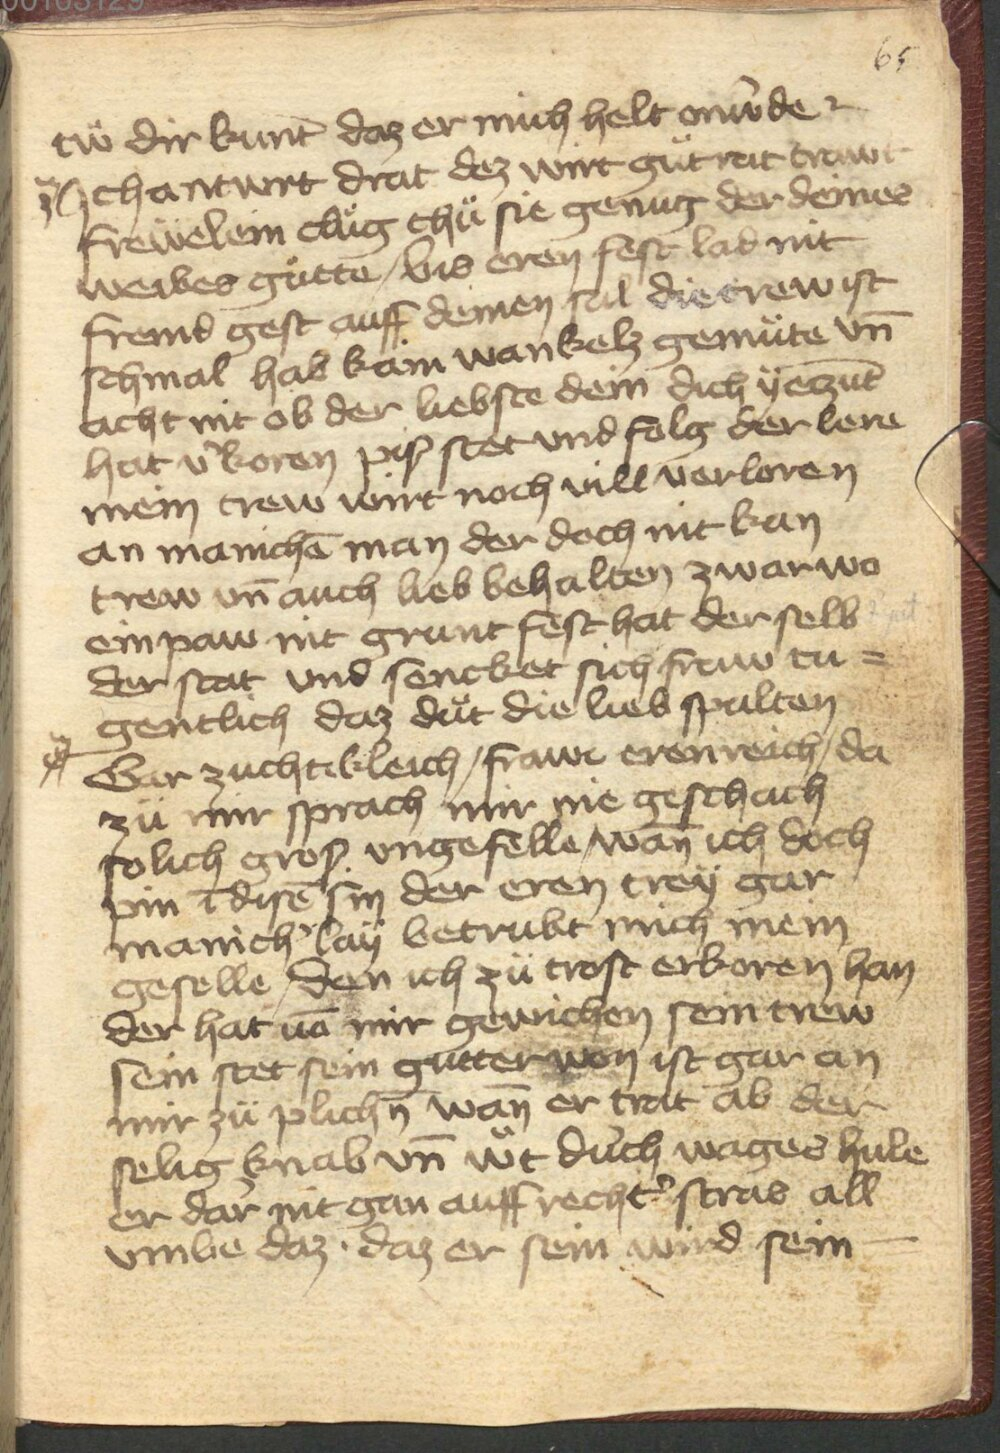 00103129
65
tẅ dir kunt̄ daz er mich helt vnw̄de
Ich antwrt drat dez wirt gůt rat trawt
freẅelein clůg thů sie genug der deines
weibes gůtte / bis eren fest lad nit
fremd gest auff deinen sal die trew ist
schmal hab kain wankelz gemüte vn̄
acht nit ob der liebste dein dich ÿeczūt
hat v͛koren pis stet vnd folg der lere
mein trew wirt noch vill verloren
an manichē man der doch nit kan
trew vn̄ auch lieb behalten zwar wo
ein paw nit grunt fest hat der selb
der stat vnd sencket sich fraw tu =
gentlich daz důt die lieb spalten
Gar zuchtikleich / frawe erenreich / da
zü mir sprach mir nie geschach
solich gros vngefelle / wan̄ ich doch
pin ī disē sin der eren treÿ gar
manich͛laÿ betrubt mich mein
geselle / den ich zü trost erkoren han
der hat uō mir gewichen sein trew
sein stet sein gutter won ist gar an
mir zü plichn̄ wan̄ er trat ab der
selig knab vn̄ ẘt durch wages hale
er dar͛ nit gan auff recht͛ stras all
vmbe daz · daz er sein wird sein